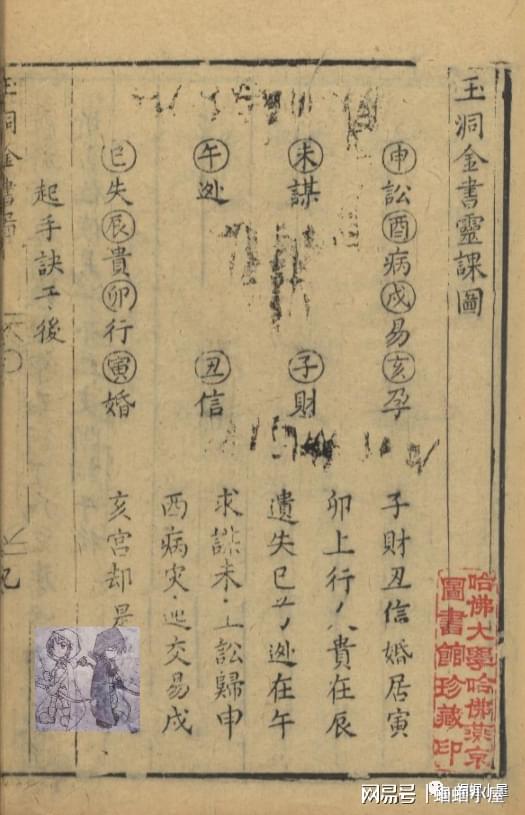 玉洞金書靈課圖
申訟酉病戌易亥孕
未謀
子財
午逃
丑信
巳失辰貴卯行寅婚
子財丑信婚居寅
卯上行人貴在辰
遺失巳
逃在午
求謀未
訟歸申
酉病災
交易戌
亥宮却是
起手訣
後
玉洞金書
哈佛大學哈佛燕京
圖書館珍藏印
網易号
蝈蝈小屋